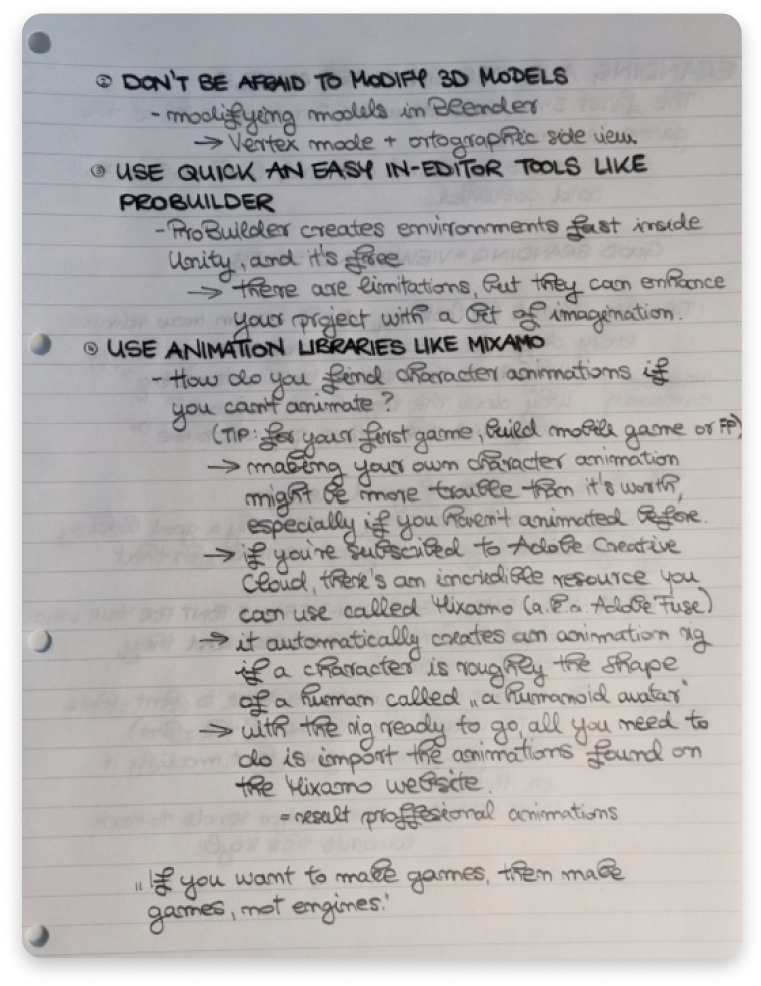 ② DON'T BE AFRAID TO MODIFY 3D MODELS
- modifying models in Blender
→ Vertex mode + ortographic side view.
③ USE QUICK AN EASY IN-EDITOR TOOLS LIKE
PROBUILDER
- ProBuilder creates environments fast inside
Unity, and it's free
→ there are limitations, but they can enhance
your project with a bit of imagination.
④ USE ANIMATION LIBRARIES LIKE MIXAMO
- How do you find character animations if
you can't animate?
(TIP: for your first game, build mobile game or FP)
→ making your own character animation
might be more trouble than it's worth,
especially if you haven't animated before.
→ if you're subscribed to Adobe Creative
Cloud, there's an incredible resource you
can use called Mixamo (a.k.a Adobe Fuse)
→ it automatically creates an animation rig
if a character is roughly the shape
of a human called „a humanoid avatar"
→ with the rig ready to go, all you need to
do is import the animations found on
the Mixamo website.
= result proffesional animations
„If you want to make games, then make
games, not engines."